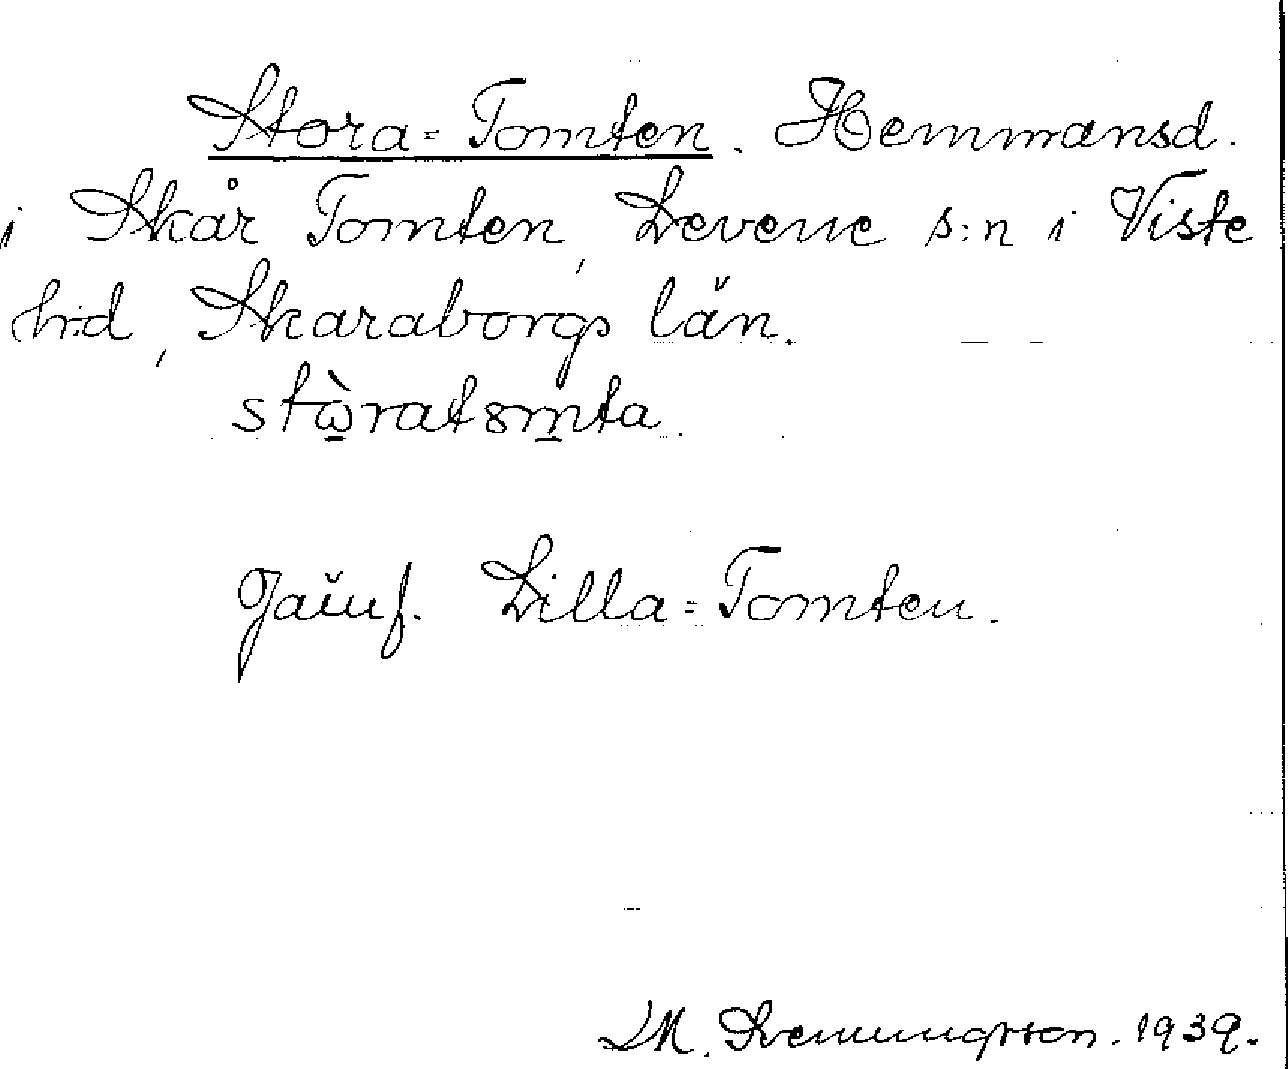 Stora-Tomten. Hemmansd.
i Skår Tomten, Levene s:n i Viste
h:d, Skaraborgs län.
stὼ̲ratꝏm̲ta.
Jämf. Lilla-Tomten.
LM. 1939.